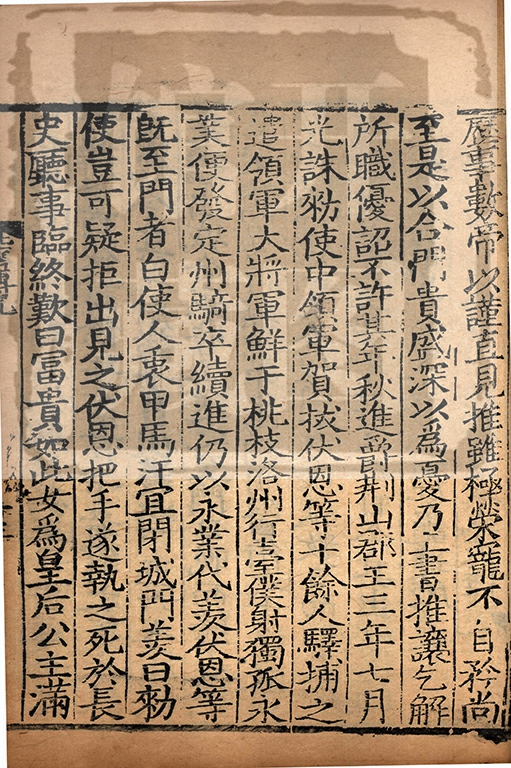 歷事數帝以謹直見推雖極榮寵不自矜尚
至是以合門貴盛深以爲憂乃上書推讓乞解
所職優詔不許其年秋進爵荆山郡王三年七月
光誅勑使中領軍賀拔伏恩等十餘人驛捕之
遣領軍大將軍鮮于桃枝洛州行臺僕射獨孤永
業便發定州騎卒續進仍以永業代羨伏恩等
旣至門者白使人衷甲馬汗宜閉城門羨曰勑
使豈可疑拒出見之伏恩把手遂執之死於長
史聽事臨終歎曰富貴如此女爲皇后公主滿